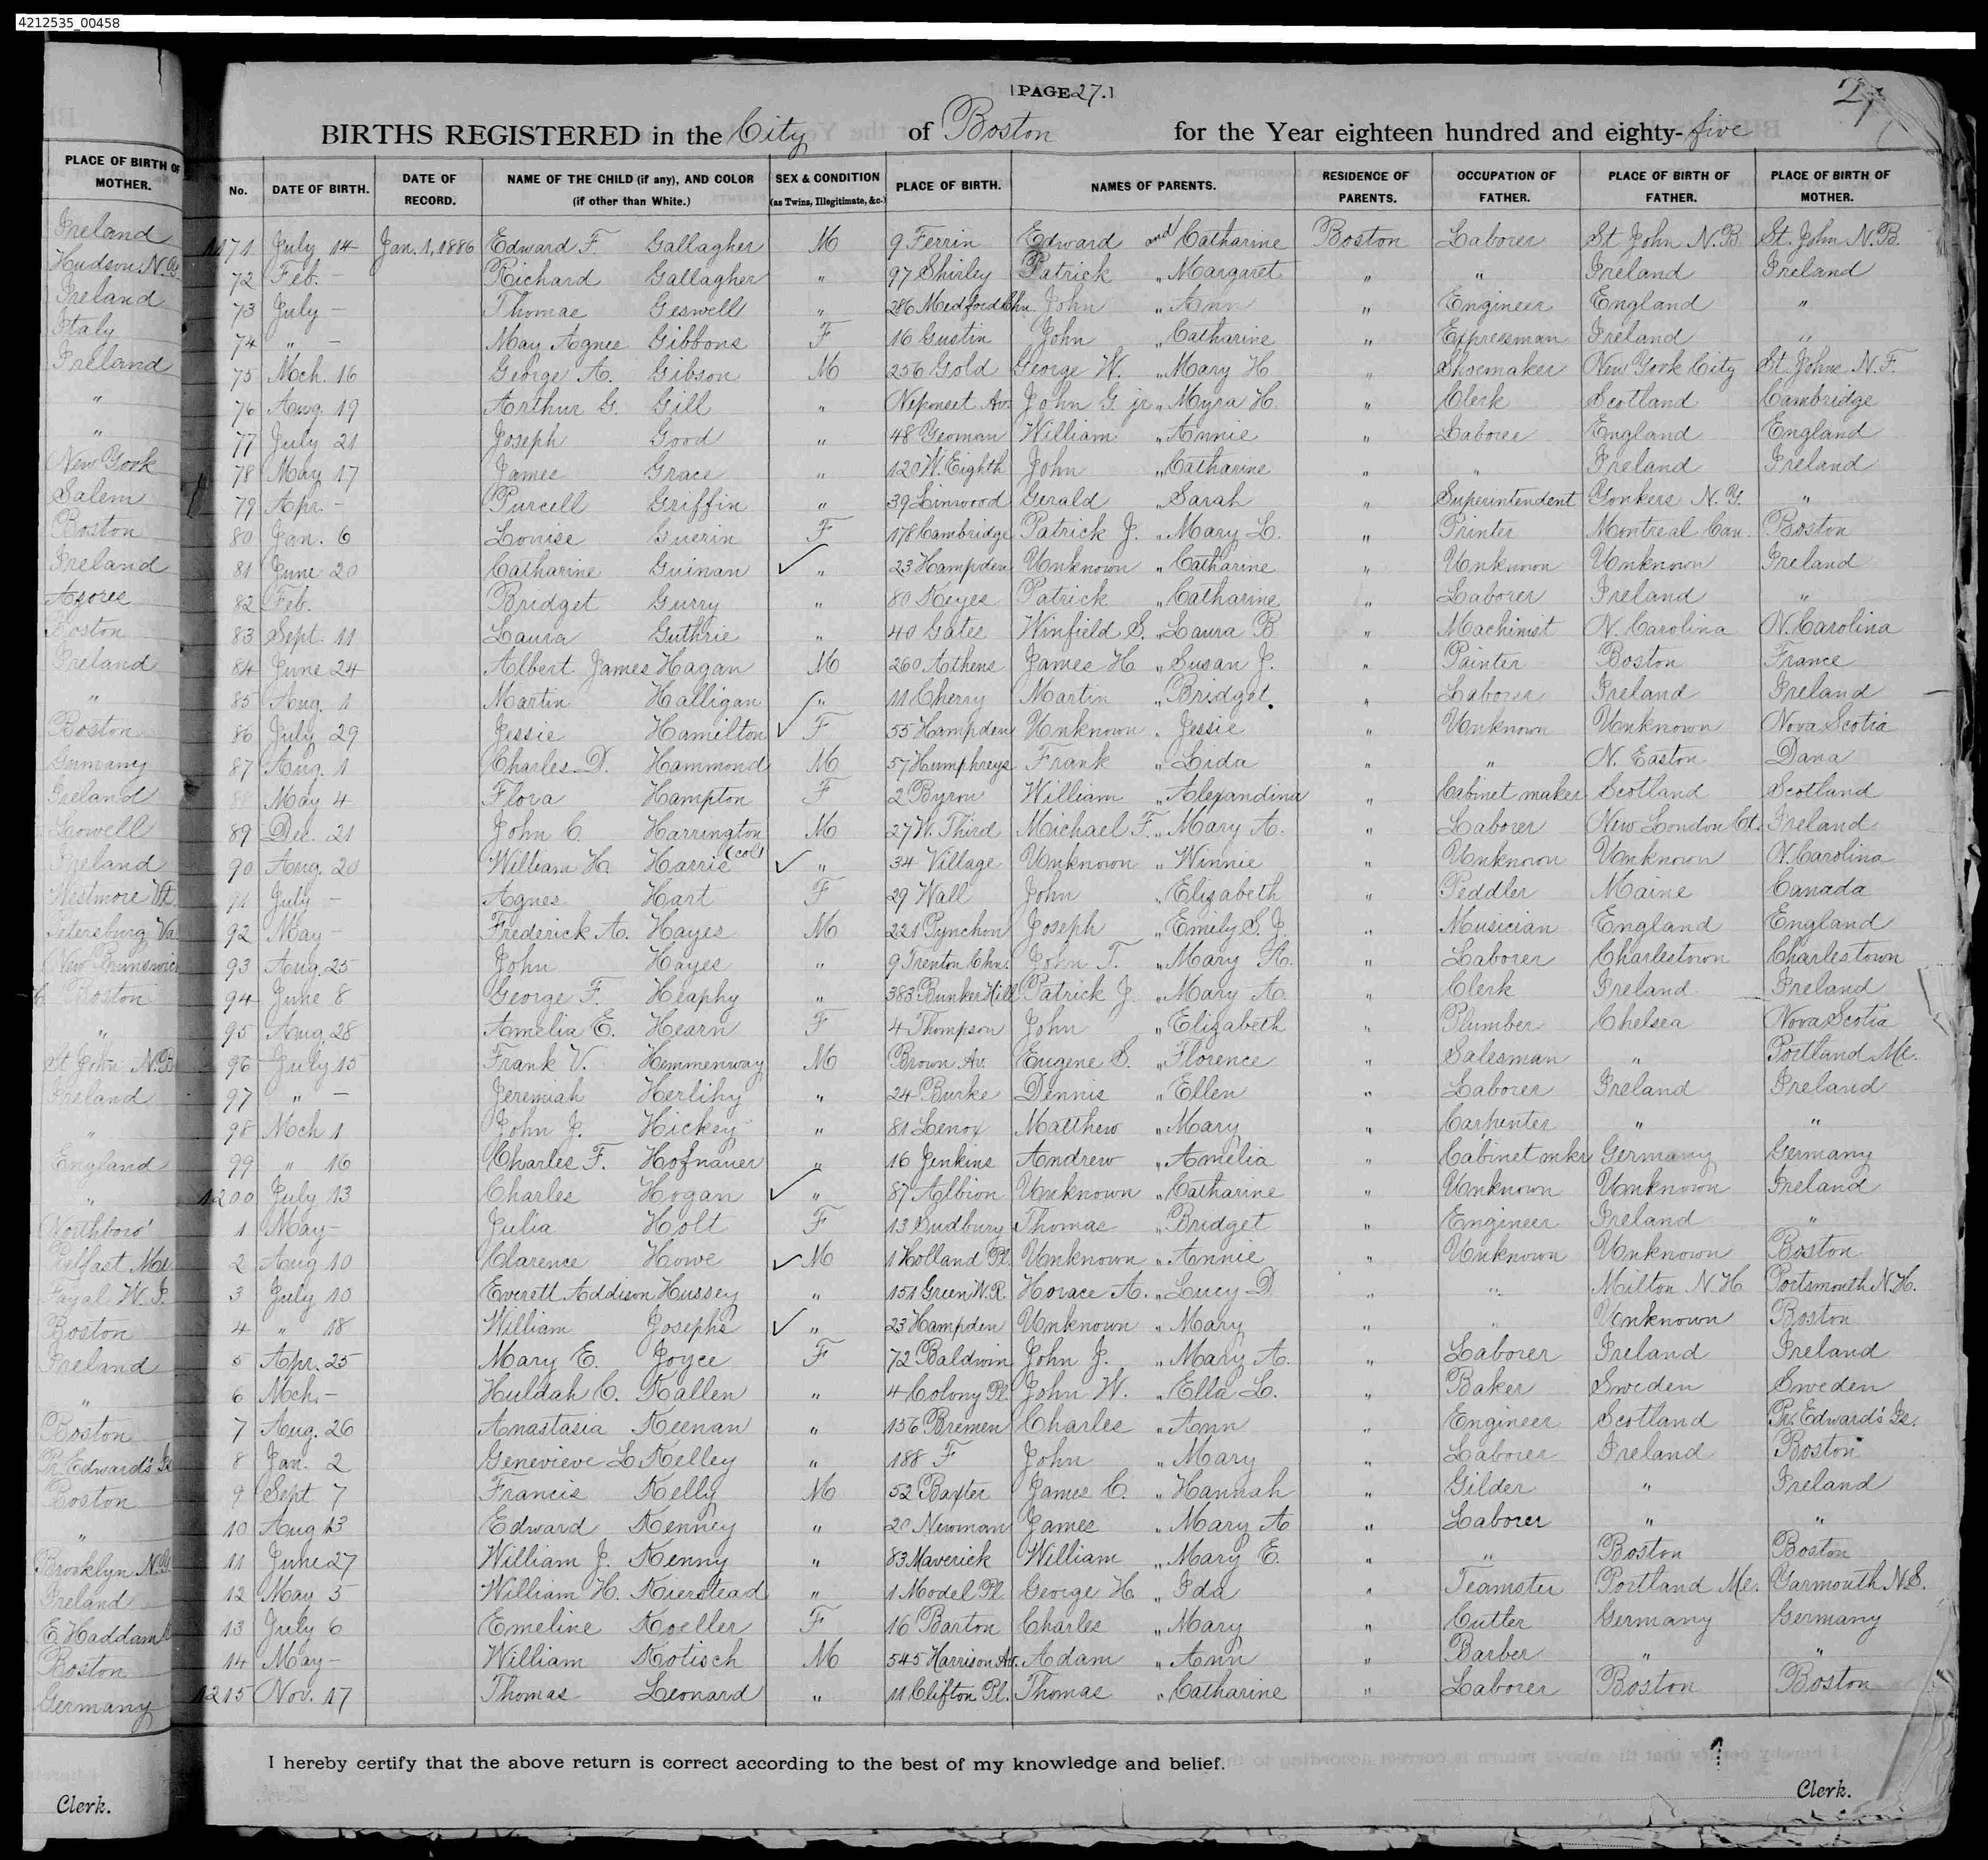 4212535_00458
PAGE 27.
27
BIRTHS REGISTERED in the City of Boston for the Year eighteen hundred and eighty-five
PLACE OF BIRTH OF MOTHER.
Ireland
Hudson N.Y.
Ireland
Italy
Ireland
"
"
New York
Salem
Boston
Ireland
Azores
Boston
Ireland
"
Boston
Germany
Ireland
Lowell
Ireland
Westmore Vt.
Petersburg Va
New Brunswick
Boston
"
St John N.B
Ireland
"
England
"
Northboro'
Belfast Me.
Fayal W.I.
Boston
Ireland
"
Boston
Pr. Edward's Is
Boston
"
Brooklyn N.Y.
Ireland
E. Haddam
Boston
Germany
Clerk.
No. DATE OF BIRTH. DATE OF RECORD. NAME OF THE CHILD (if any), AND COLOR (if other than White.) SEX & CONDITION (as Twins, Illegitimate, &c.) PLACE OF BIRTH. NAMES OF PARENTS. RESIDENCE OF PARENTS. OCCUPATION OF FATHER. PLACE OF BIRTH OF FATHER. PLACE OF BIRTH OF MOTHER.
1171 July 14 Jan. 1, 1886 Edward F. Gallagher M 9 Ferrin Edward and Catharine Boston Laborer St John N.B. St. John N.B.
72 Feb. - Richard Gallagher " 97 Shirley Patrick " Margaret " " Ireland Ireland
73 July - Thomas Geswell " 286 Medford Chn. John " Ann " Engineer England "
74 " - May Agnes Gibbons F 16 Gustin John " Catharine " Expressman Ireland "
75 Mch. 16 George A. Gibson M 256 Gold George W. " Mary H " Shoemaker New York City St. Johns N.F.
76 Aug. 19 Arthur G. Gill " Neponset Av. John G. jr " Myra H. " Clerk Scotland Cambridge
77 July 21 Joseph Good " 48 Yeoman William " Annie " Laborer England England
78 May 17 James Grace " 120 W. Eighth John " Catharine " " Ireland Ireland
79 Apr. - Purcell Griffin " 39 Linwood Gerald " Sarah " Superintendent Yonkers N.Y. "
80 Jan. 6 Louise Guerin F 178 Cambridge Patrick J. " Mary L. " Printer Montreal Can. Boston
81 June 20 Catharine Guinan ✓ " 23 Hampden Unknown " Catharine " Unknown Unknown Ireland
82 Feb. Bridget Gurry " 80 Keyes Patrick " Catharine " Laborer Ireland "
83 Sept. 11 Laura Guthrie " 40 Gates Winfield S. " Laura B " Machinist N. Carolina N. Carolina
84 June 24 Albert James Hagan M 260 Athens James H " Susan J. " Painter Boston France
85 Aug. 1 Martin Halligan " 11 Cherry Martin " Bridget. " Laborer Ireland Ireland
86 July 29 Jessie Hamilton ✓ F 55 Hampden Unknown " Jessie " Unknown Unknown Nova Scotia
87 Aug. 1 Charles D. Hammond M 57 Humphreys Frank " Lida " " N. Easton Dana
88 May 4 Flora Hampton F 2 Byron William " Alexandina " Cabinet maker Scotland Scotland
89 Dec. 21 John C. Harrington M 27 W. Third Michael F. " Mary A. " Laborer New London Ct. Ireland
90 Aug. 20 William H. Harris (col) ✓ " 34 Village Unknown " Winnie " Unknown Unknown N. Carolina
91 July - Agnes Hart F 29 Wall John " Elizabeth " Peddler Maine Canada
92 May - Frederick A. Hayes M 221 Pynchon Joseph " Emily S. J. " Musician England England
93 Aug. 25 John Hayes " 9 Trenton Chn. John T. " Mary A. " Laborer Charlestown Charlestown
94 June 8 George F. Heaphy " 383 Bunker Hill Patrick J. " Mary A. " Clerk Ireland Ireland
95 Aug. 28 Amelia E. Hearn F 4 Thompson John " Elizabeth " Plumber Chelsea Nova Scotia
96 July 15 Frank V. Hemmenway M Brown Av. Eugene S. " Florence " Salesman " Portland Me.
97 " - Jeremiah Herlihy " 24 Burke Dennis " Ellen " Laborer Ireland Ireland
98 Mch 1 John J. Hickey " 81 Lenox Matthew " Mary " Carpenter " "
99 " 16 Charles F. Hofnauer " 16 Jenkins Andrew " Amelia " Cabinet mkr Germany Germany
1200 July 13 Charles Hogan ✓ " 87 Albion Unknown " Catharine " Unknown Unknown Ireland
1 May - Julia Holt F 13 Sudbury Thomas " Bridget " Engineer Ireland "
2 Aug 10 Clarence Howe ✓ M 1 Holland Pl. Unknown " Annie " Unknown Unknown Boston
3 July 10 Everett Addison Hussey " 151 Green W.R. Horace A. " Lucy D " " Milton N.H Portsmouth N.H.
4 " 18 William Josephs ✓ " 23 Hampden Unknown " Mary " " Unknown Boston
5 Apr. 25 Mary E. Joyce F 72 Baldwin John J. " Mary A. " Laborer Ireland Ireland
6 Mch. - Huldah C. Kallen " 4 Colony Pl. John W. " Ella L. " Baker Sweden Sweden
7 Aug. 26 Anastasia Keenan " 156 Bremen Charles " Ann " Engineer Scotland Pr. Edward's Is.
8 Jan. 2 Genevieve L Kelley " 188 F John " Mary " Laborer Ireland Boston
9 Sept 7 Francis Kelly M 52 Baxter James C. " Hannah " Gilder " Ireland
10 Aug 13 Edward Kenney " 20 Newman James " Mary A " Laborer " "
11 June 27 William J. Kenny " 83 Maverick William " Mary E. " " Boston Boston
12 May 5 William H. Kierstead " 1 Model Pl. George H. " Ida " Teamster Portland Me. Yarmouth N.S.
13 July 6 Emeline Koeller F 16 Barton Charles " Mary " Cutter Germany Germany
14 May - William Kotisch M 545 Harrison Av. Adam " Ann " Barber " "
1215 Nov. 17 Thomas Leonard " 11 Clifton Pl. Thomas " Catharine " Laborer Boston Boston
I hereby certify that the above return is correct according to the best of my knowledge and belief.
Clerk.